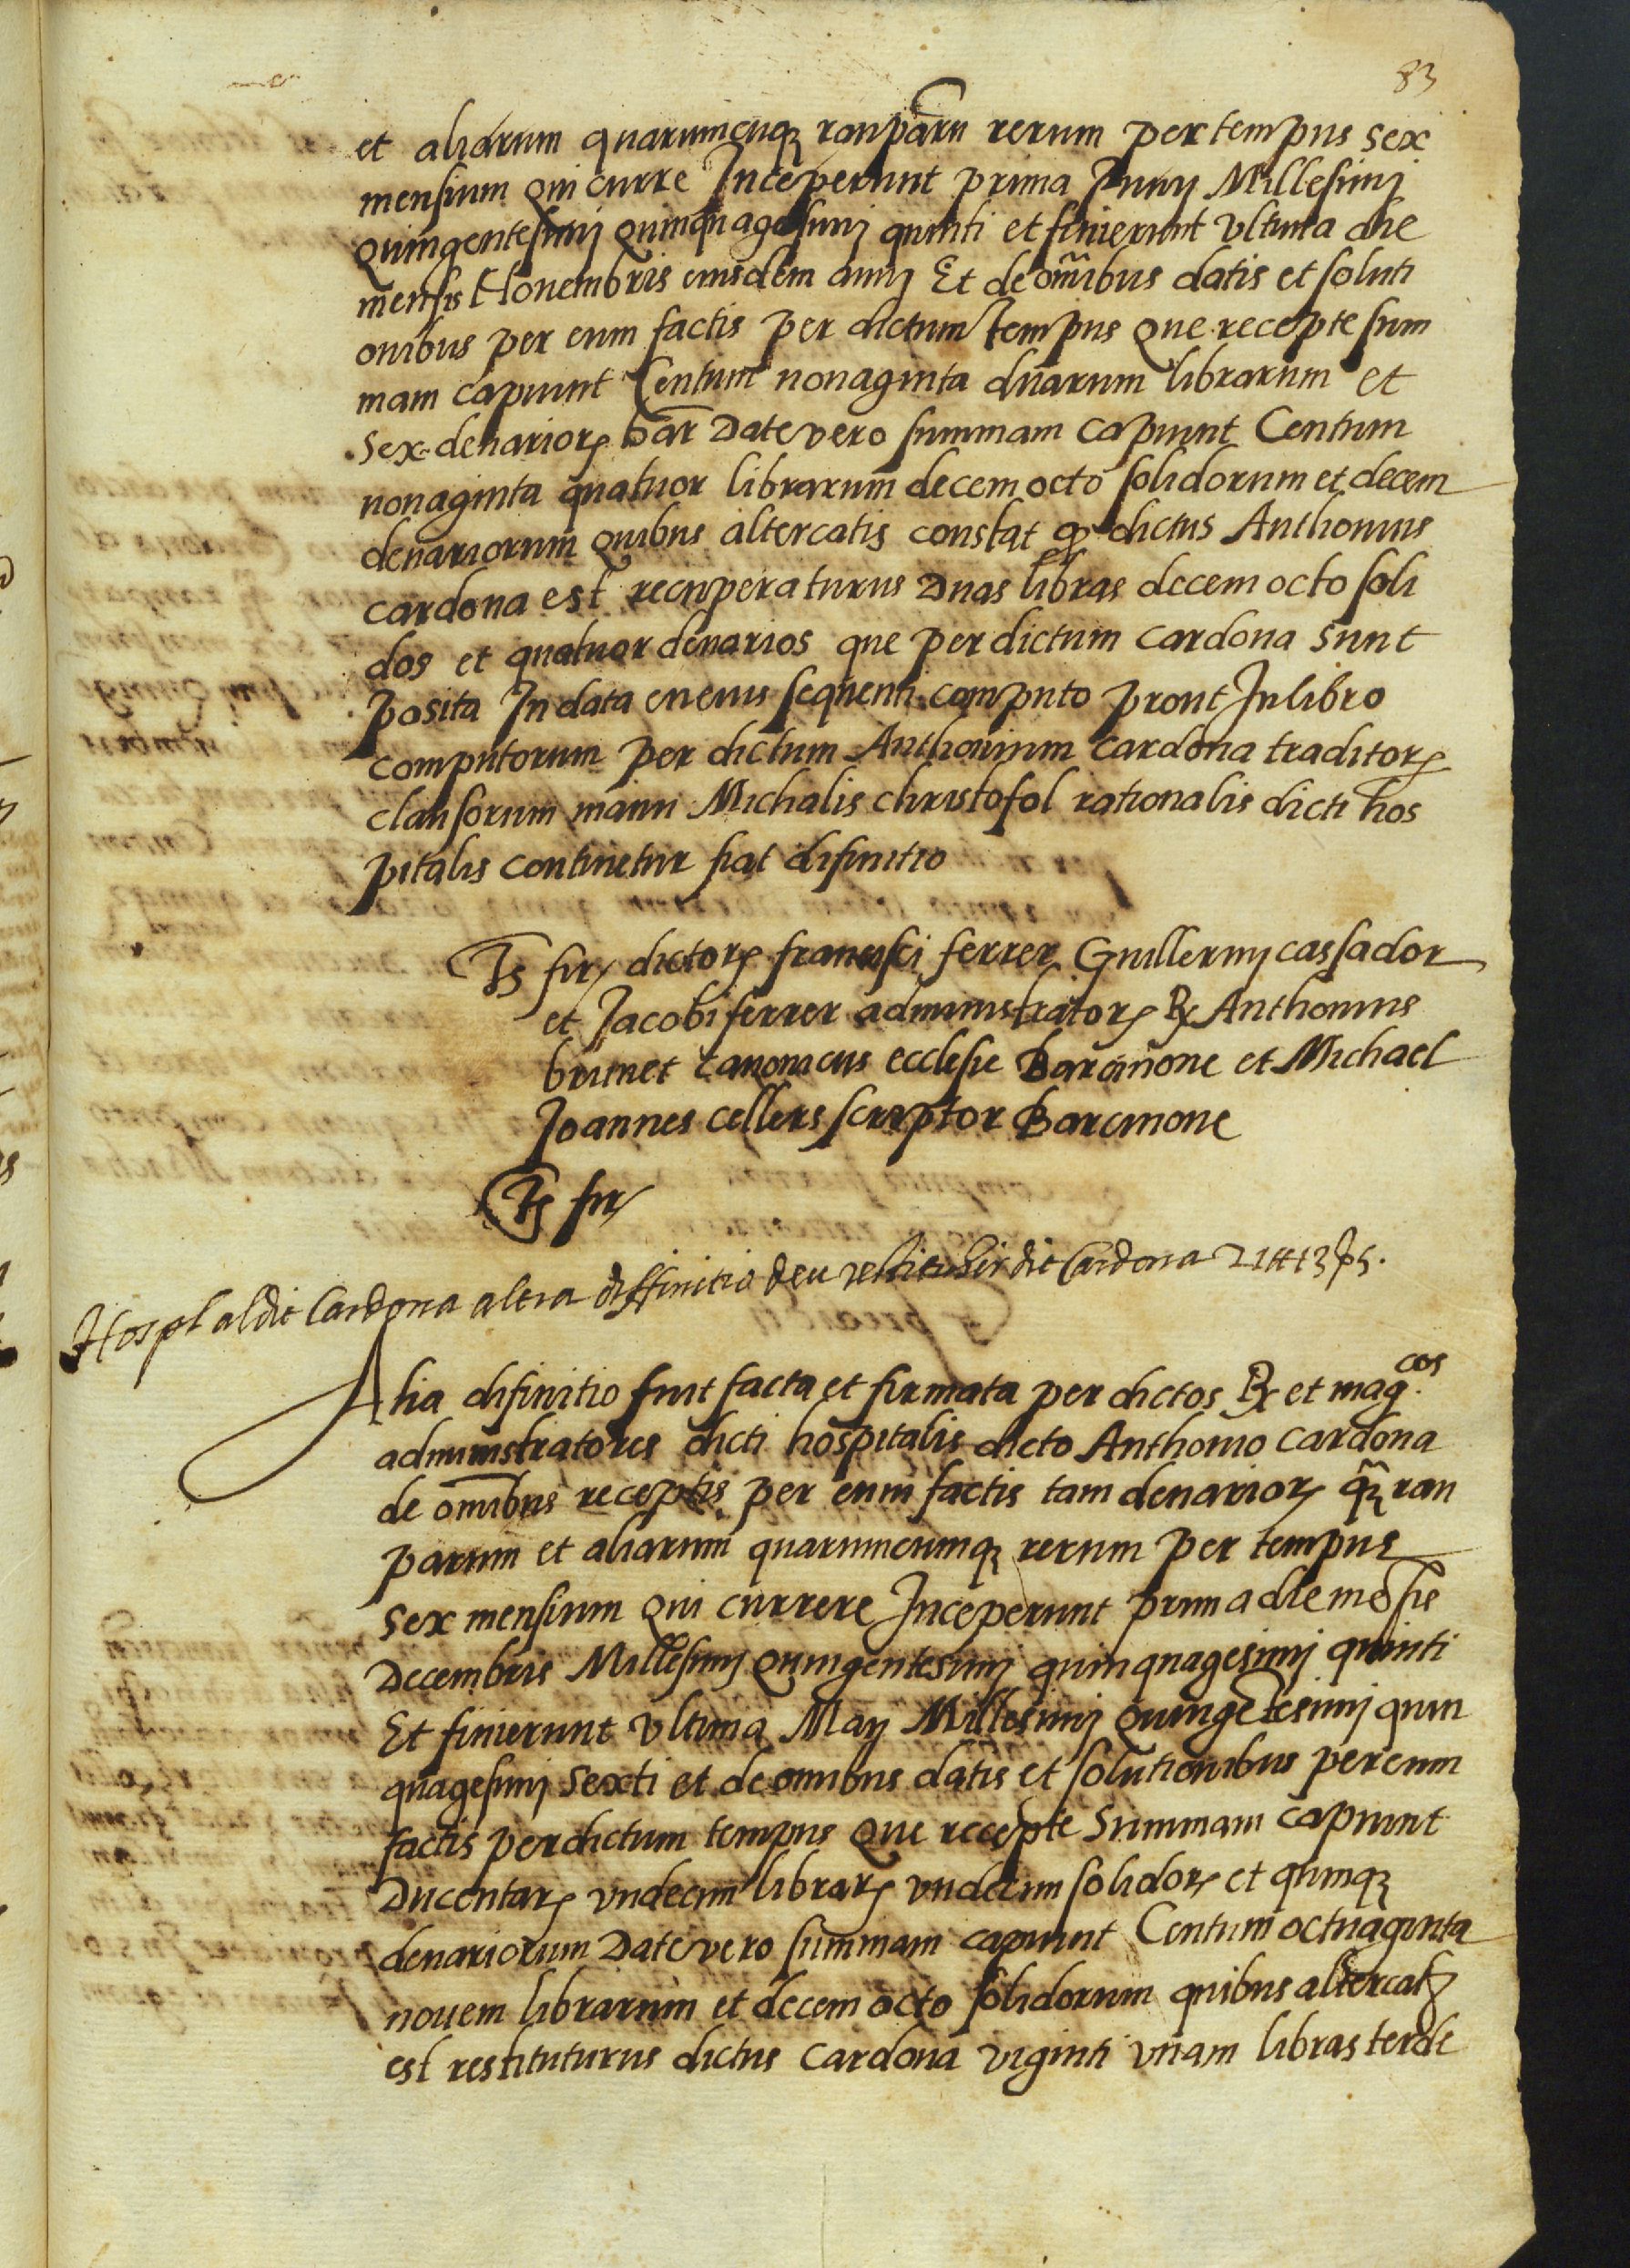 83
et aliarum quarumcuq3 ranparu rerum per tempus sex
mensium qui curre Inceperunt prima Junij Millesimj
Quingentesimj Quinquagesimj quinti et finierunt vltima die
mensis Nouembris eiusdem annj Et de omibus datis et soluti
onibus per eum factis per dictum tempus Que recepte sum
mam capiunt Centum nonaginta duarum librarum et
sex denarior bar Date vero summam capiunt Centum
nonaginta quatuor librarum decem octo solidorum et decem
denariorum Quibus altercatis constat q dictus Anthonius
cardona est recuperaturus Duas libras decem octo soli
dos et quatuor denarios que per dictum cardona sunt
posita In data sequenti computo prout In libro
computorum per dictum Anthonium cardona traditor
clausorum manu Michalis christofol rationalis dicti hos
pitalis continetur fiat difinitio
Ts fir dictor francisci ferrer Guillermj cassador
et Jacobi ferrer administrator R Anthonius
brunet canonicus ecclesie Barcinone et Michael
Joannes cellers scriptor Barcinone
Ts fir
Hospl al dit Cardona altra diffinitio deu restituhir dit Cardona 21 ₶ 13 ß 5.
Alia difinitio fuit facta et firmata per dictos R et mag.cos
administratores dicti hospitalis dicto Anthonio cardona
de omibus receptis per eum factis tam denarior q3 ran
parum et aliarum quarumcumq3 rerum per tempus
sex mensium Qui currere Inceperunt prima die mesis
Decembris Millesimj Quingentesimj quinquagesimj quinti
Et finierunt vltima Maij Millesimj Quingetesimj quin
quagesimj sexti et de omnibus datis et solutionibus per eum
factis per dictum tempus Que recepte summam capiunt
Ducentar vndecim librar vndecim solidor et quinq3
denariorum Date vero summam capiunt Centum octuaginta
nouem librarum et decem octo solidorum quibus altercat
est restituturus dictus cardona viginti vnam libras terde